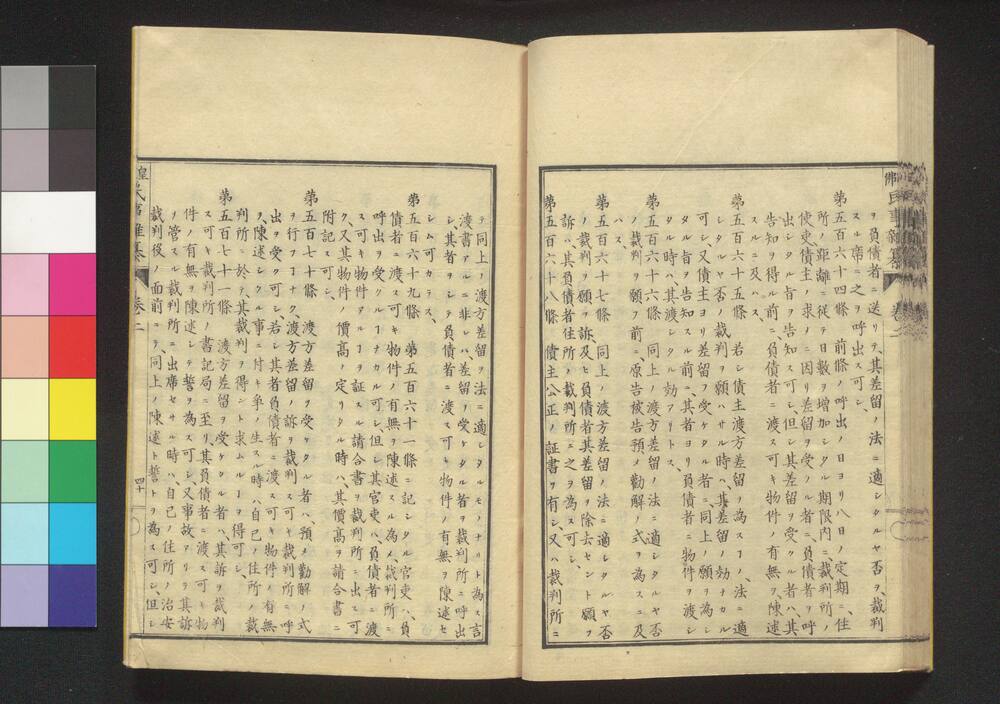 ヲ負債者ニ送リテ、其差留ノ法ニ適シタルヤ否ヲ、裁判
スル席ニ之ヲ呼出ス可シ、
第五百六十四條 前條ノ呼出ノ日ヨリ八日ノ定期ニ、住
所ノ距離ニ從テ日數ヲ增加シタル期限內ニ、裁判所ノ
使吏、債主ノ求メニ因リ差留ヲ受ケシ者ニ、負債者ヲ呼
出シタル旨ヲ告知ス可シ、但シ其差留ヲ受クル者ハ、其
告知ヲ得ル前ニ、負債者ニ渡ス可キ物件ノ有無ヲ陳述
スルニ及ハス、
第五百六十五條 若シ債主渡方差留ヲ為スヿノ、法ニ適
シタルヤ否ノ裁判ヲ願ハサル時ハ、其差留ノ効ナカル
可シ、又債主ヨリ差留ヲ受ケタル者ニ、同上ノ願ヲ為シ
タル旨ヲ告知スル前ニ、其者ヨリ、負債者ニ物件ヲ渡シ
タル時ハ、其渡シタル効アリトス、
第五百六十六條 同上ノ渡方差留ノ法ニ適シタルヤ否
ノ裁判ヲ願フ前ニ、原告被告預メ勸解ノ式ヲ為スニ及
ハス、
第五百六十七條 同上ノ渡方差留ノ法ニ適シタルヤ否
ノ裁判ヲ願フノ訴、及ヒ負債者其差留ヲ除去セント願フ
訴ハ、其負債者住所ノ裁判所ニ之ヲ為ス可シ、
第五百六十八條 債主公正ノ証書ヲ有シ、又ハ裁判所ニ
テ同上ノ渡方差留ヲ法ニ適シタルモノナリト為ス言
渡書アルニ非レハ、差留ヲ受ケタル者ヲ裁判所ニ呼出
シ、其者ヲシテ負債者ニ渡ス可キ物件ノ有無ヲ陳述セ
シム可カラス、
第五百六十九條 第五百六十一條ニ記シタル官吏ハ、負
債者ニ渡ス可キ物件ノ有無ヲ陳述スル為メ、裁判所ニ
呼出ヲ受クルヿナカル可シ、但シ其官吏ハ、負債者ニ渡
ス可キ物件アルヿヲ証スル請合書ヲ裁判所ニ出ス可
ク、又其物件ノ價高ノ定リタル時ハ、其價高ヲ請合書ニ
附記ス可シ、
第五百七十條 渡方差留ヲ受ケタル者ハ、預メ勸解ノ式
ヲ行フヿナク、渡方差留ノ訴ヲ裁判ス可キ裁判所ニ呼
出ヲ受ク可シ、若シ其者負債者ニ渡ス可キ物件ノ有無
ヲ、陳述シタル事ニ付キ爭ノ生スル時ハ、自己ノ住所ノ裁
判所ニ於テ、其裁判ヲ得ント求ムルヿヲ得可シ、
第五百七十一條 渡方差留ヲ受ケタル者ハ、其訴ヲ裁判
ス可キ裁判所ノ書記局ニ至リ、其負債者ニ渡ス可キ物
件ノ有無ヲ陳述シテ誓ヲ為ス可シ、又事故アリテ其訴
ヲ管スル裁判所ニ出席セサル時ハ、自己ノ住所ノ治安
裁判役ノ面前ニテ、同上ノ陳述ト誓トヲ為ス可シ、但シ
卷二
四十